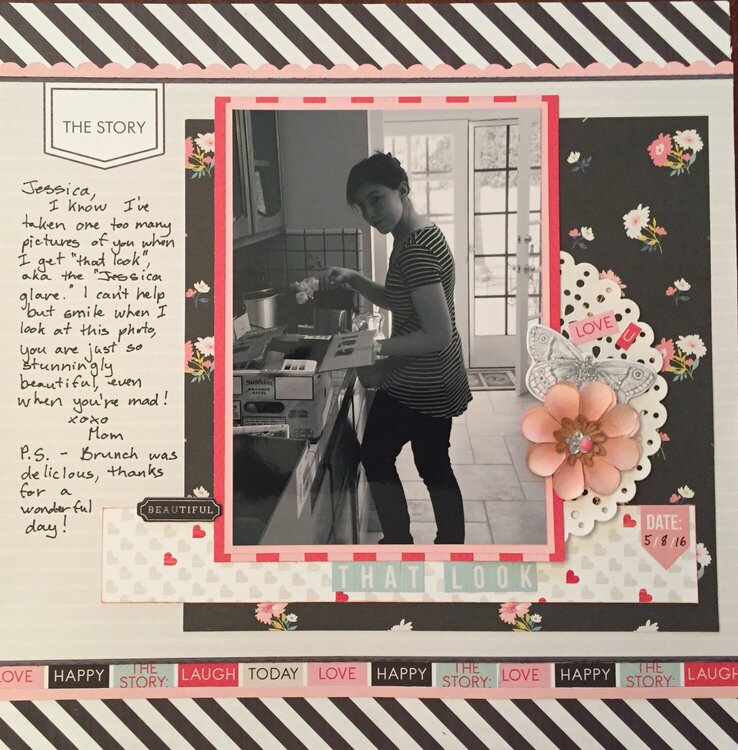 THE STORY
Jessica,
I know I've
taken one too many
pictures of you when
I get "that look",
aka the "Jessica
glare." I can't help
but smile when I
look at this photo,
you are just so
stunningly
beautiful, even
when you're mad!
xoxo
Mom
P.S. - Brunch was
delicious, thanks
for a
wonderful
day!
BEAUTIFUL
Sunkist
LOVE U
DATE:
5/8/16
THAT LOOK
LOVE HAPPY THE STORY: LAUGH TODAY LOVE HAPPY THE STORY: LOVE HAPPY THE STORY: LAUGH